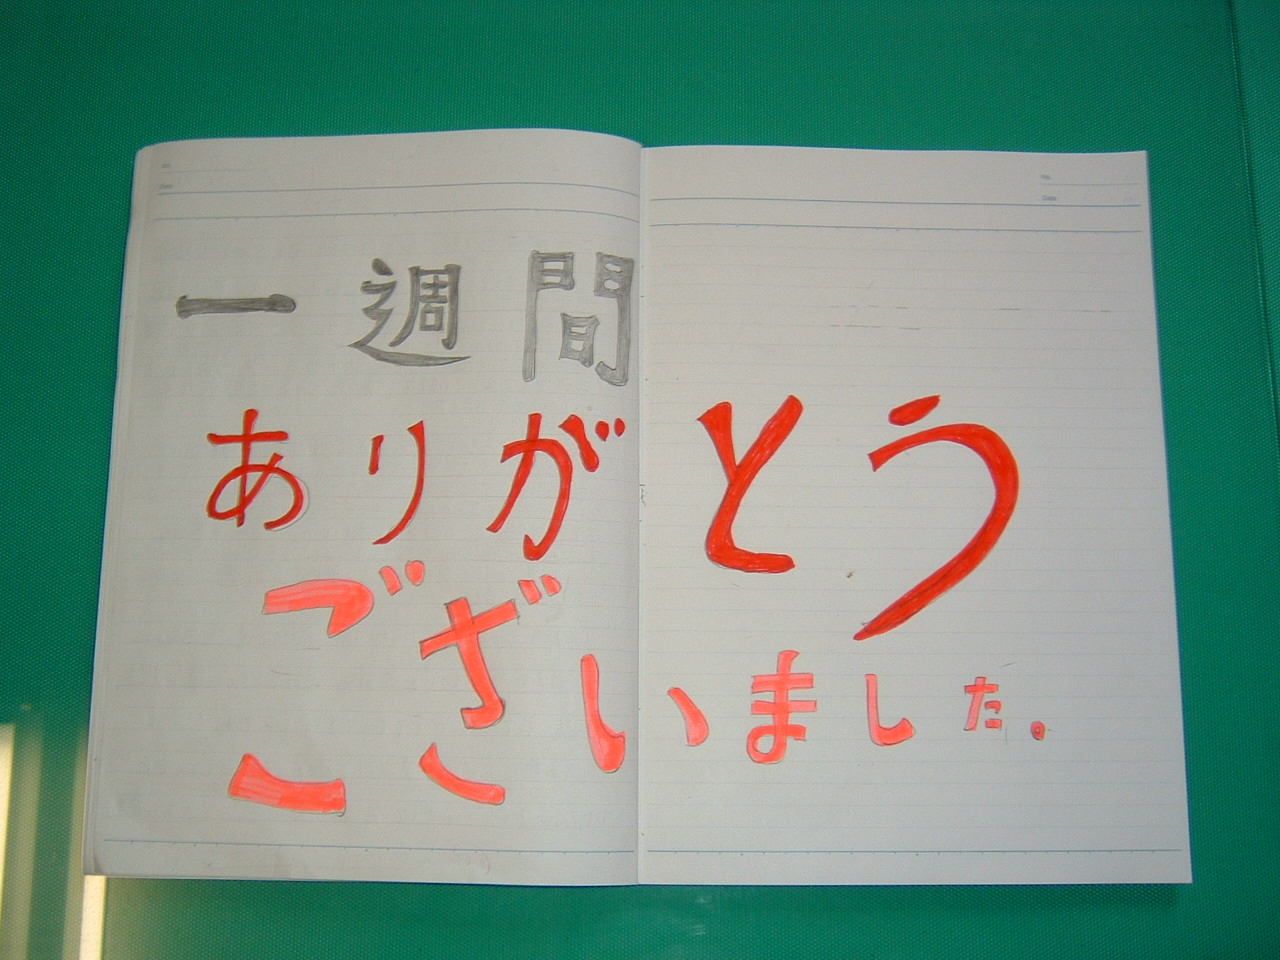 一週間
ありがとう
ございました。